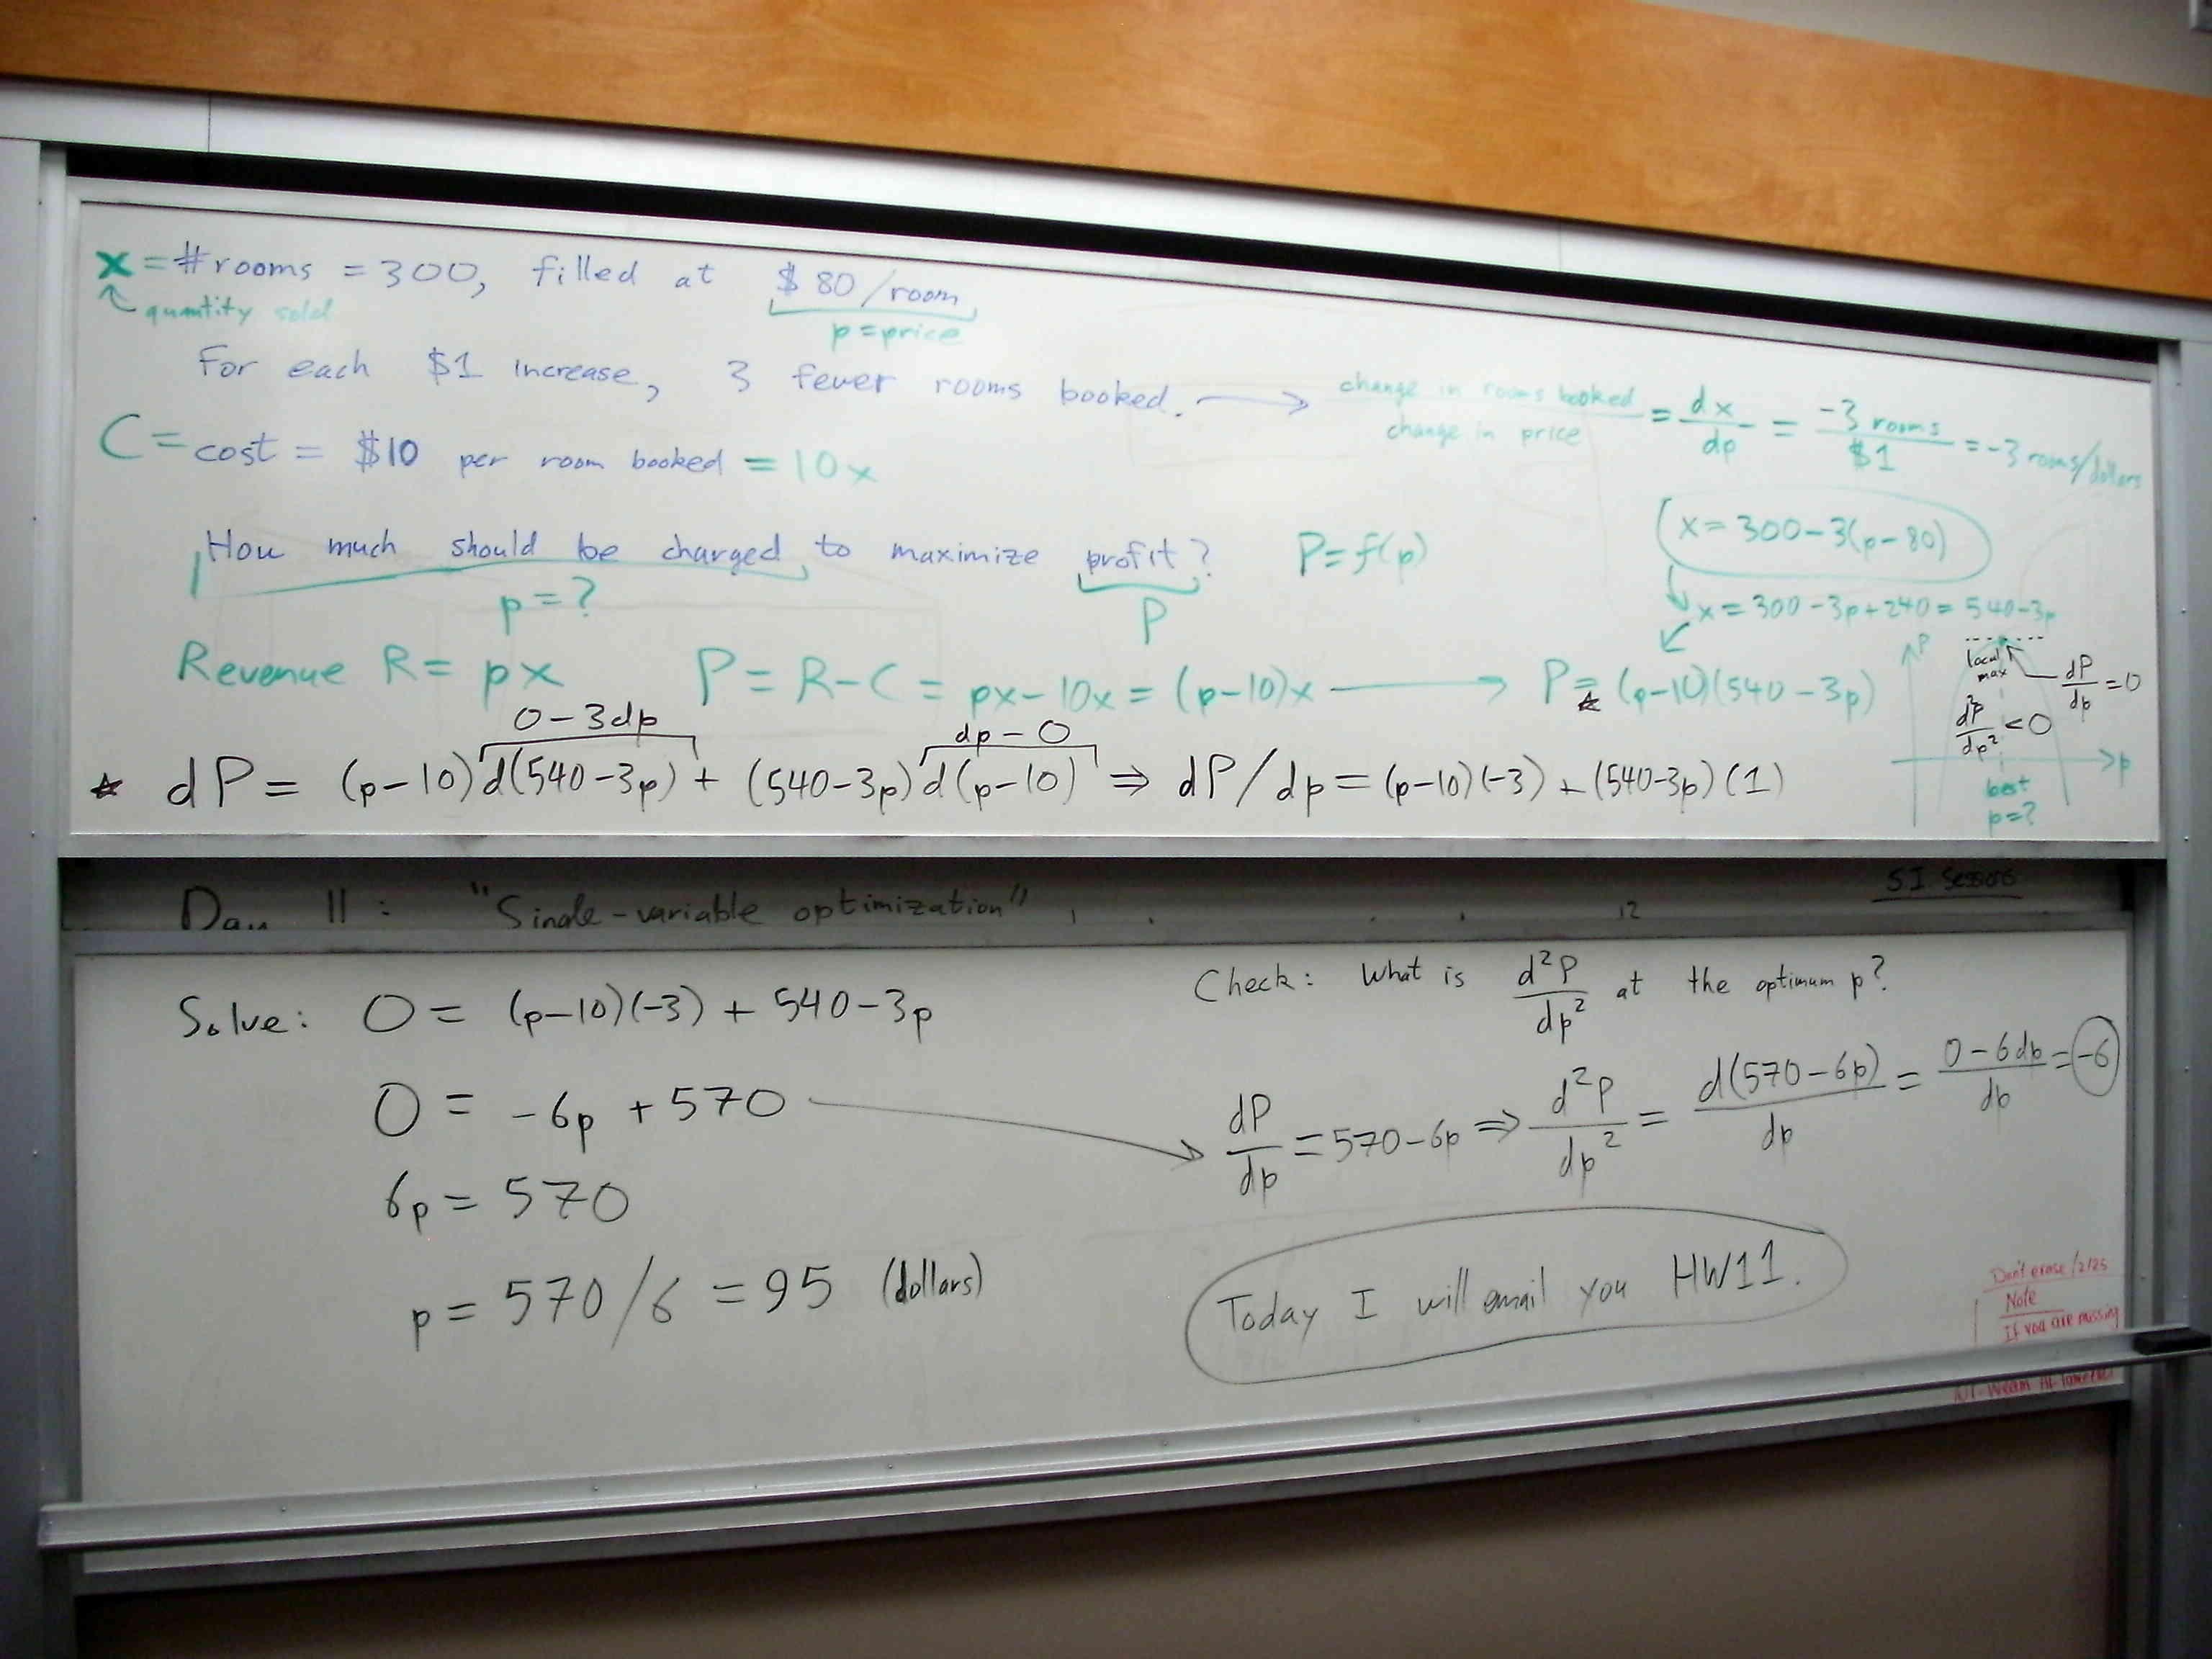 x = #rooms = 300, filled at $80/room
quantity sold
p = price
For each $1 increase, 3 fewer rooms booked. → change in rooms booked / change in price = dx/dp = -3 rooms/$1 = -3 rooms/dollars
C = cost = $10 per room booked = 10x
x = 300-3(p-80)
How much should be charged to maximize profit? P = f(p)
p = ?
P
x = 300-3p+240 = 540-3p
Revenue R = px P = R-C = px-10x = (p-10)x → P = (p-10)(540-3p)
P
local max
dP/dp = 0
d²P/dp² < 0
p
best
p=?
0-3dp
dp-0
☆ dP = (p-10)d(540-3p) + (540-3p)d(p-10) ⇒ dP/dp = (p-10)(-3) + (540-3p)(1)
Day 11: "Single-variable optimization"
12
SI Sessions
Solve: 0 = (p-10)(-3) + 540-3p
0 = -6p + 570
6p = 570
p = 570/6 = 95 (dollars)
Check: What is d²P/dp² at the optimum p?
dP/dp = 570-6p ⇒ d²P/dp² = d(570-6p)/dp = 0-6dp/dp = -6
Today I will email you HW11.
Don't erase /2/25
Note
If you are missing